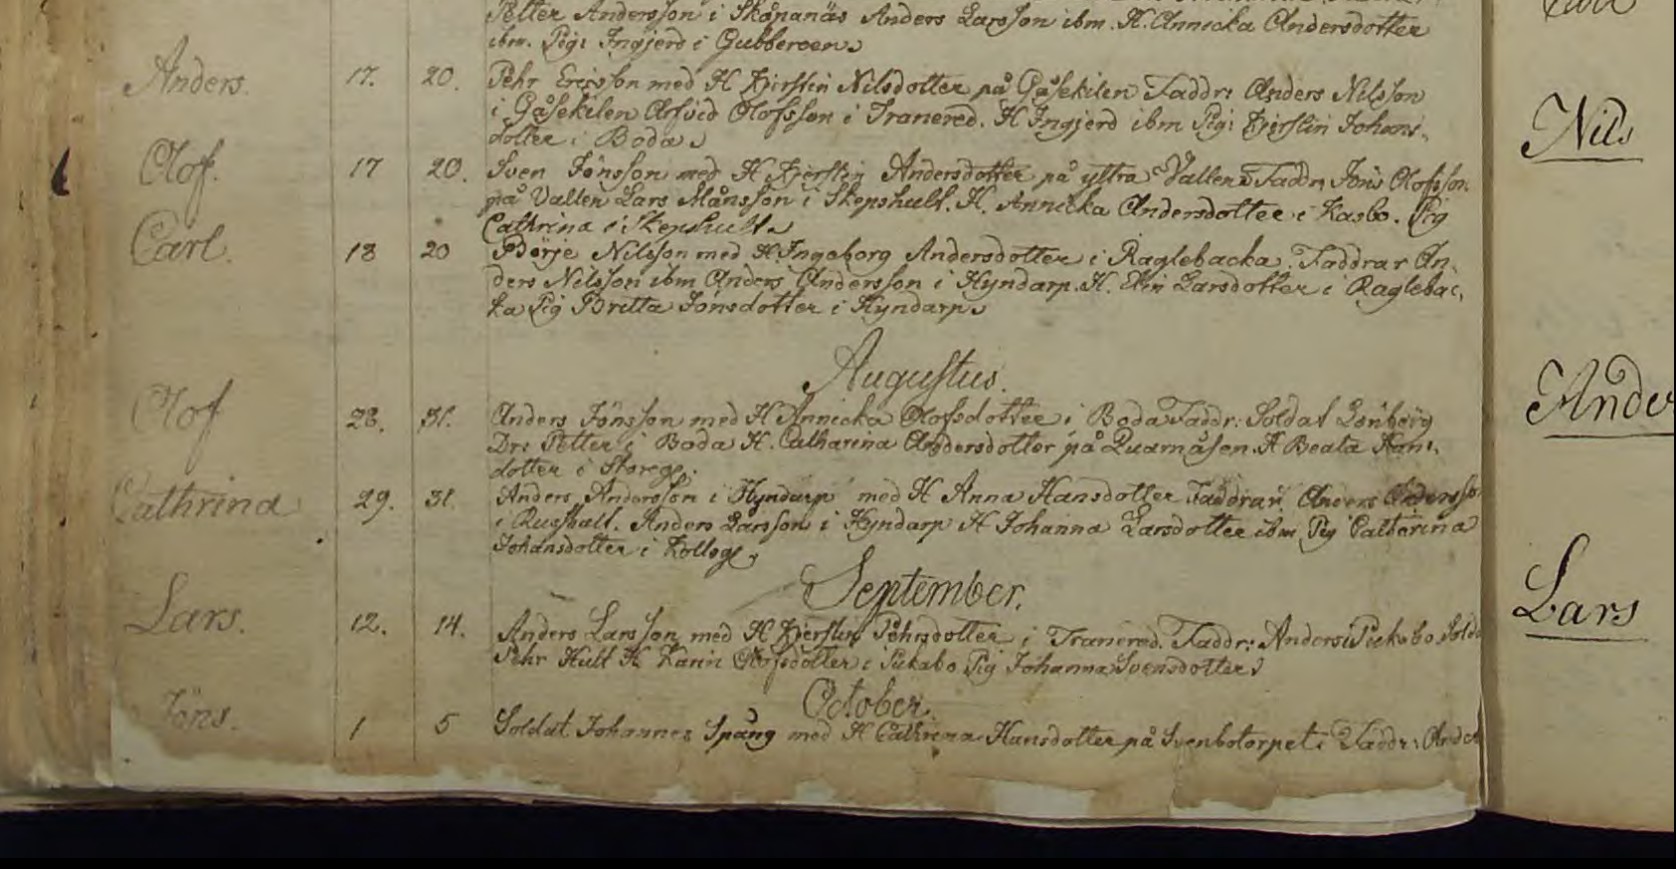 Petter Andersson i Skåpanäs Anders Larsson ibm. H. Annicka Andersdotter
ibm. Pig: Ingjerd i Gubberoen.
Anders. 17. 20. Pehr Ericsson med H Kjerstin Nilsdotter på Gåsekilen Faddr: Anders Nilsson
i Gåsekilen Arfvid Olofsson i Tranered. H Ingjerd ibm Pig: Kjerstin Johans-
dotter i Boda.
Olof. 17 20. Sven Jönsson med H Kjerstin Andersdotter på yttra Vallen Faddr: Jöns Olofsson
på Vallen Lars Månsson i Skepshult. H. Annicka Andersdotter i Kasbo. Pig
Cathrina i Skepshult.
Carl. 18 20 Börje Nilsson med H. Ingeborg Andersdotter i Raglebacka. Faddrar An-
ders Nilsson ibm Anders Andersson i Hyndarp. H. Elin Larsdotter i Raglebac-
ka Pig Britta Jönsdotter i Hyndarp.
Augustus.
Olof 28. 31. Anders Jönsson med H Annicka Olofsdotter i Boda Faddr: Soldat Lönberg
Dr: Petter i Boda H. Catharina Andersdotter på Quarnåsen. H Beata Han-
dotter i Storegl.
Cathrina 29. 31. Anders Andersson i Hyndarp med H Anna Hansdotter Faddrar Anders Andersso
i Rueshult. Anders Larsson i Hyndarp H Johanna Larsdotter ibm Pig Catharina
Johansdotter i
September.
Lars. 12. 14. Anders Larsson med H Kjerstin Pehrsdotter i Tranered. Faddr: Anders i Pukabo Sold
Pehr Hult H Karin Olofsdotter i Pukabo Pig Johanna Svensdotter
October.
Jöns. 1 5 Soldat Johannes Spång med H Cathrina Hansdotter på Svenbotorpet: Faddr: Ander
Nils
Ander
Lars